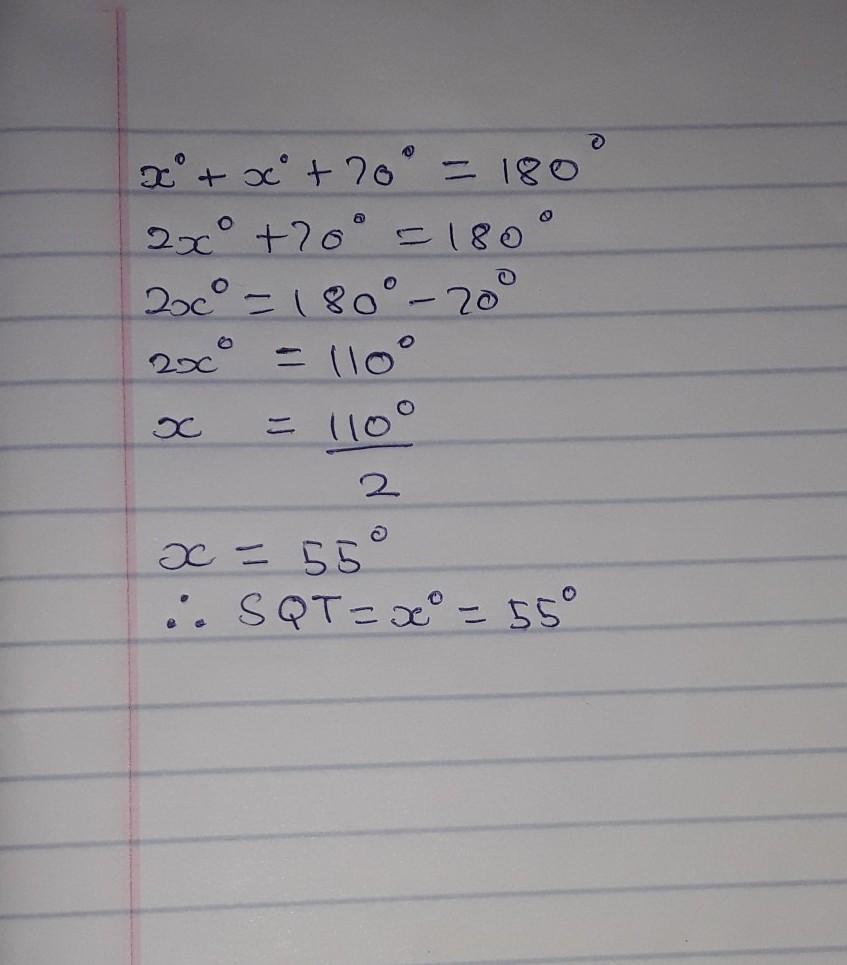 x° + x° + 70° = 180°
2x° + 70° = 180°
2x° = 180° - 70°
2x° = 110°
x = 110°
2
x = 55°
∴ SQT = x° = 55°